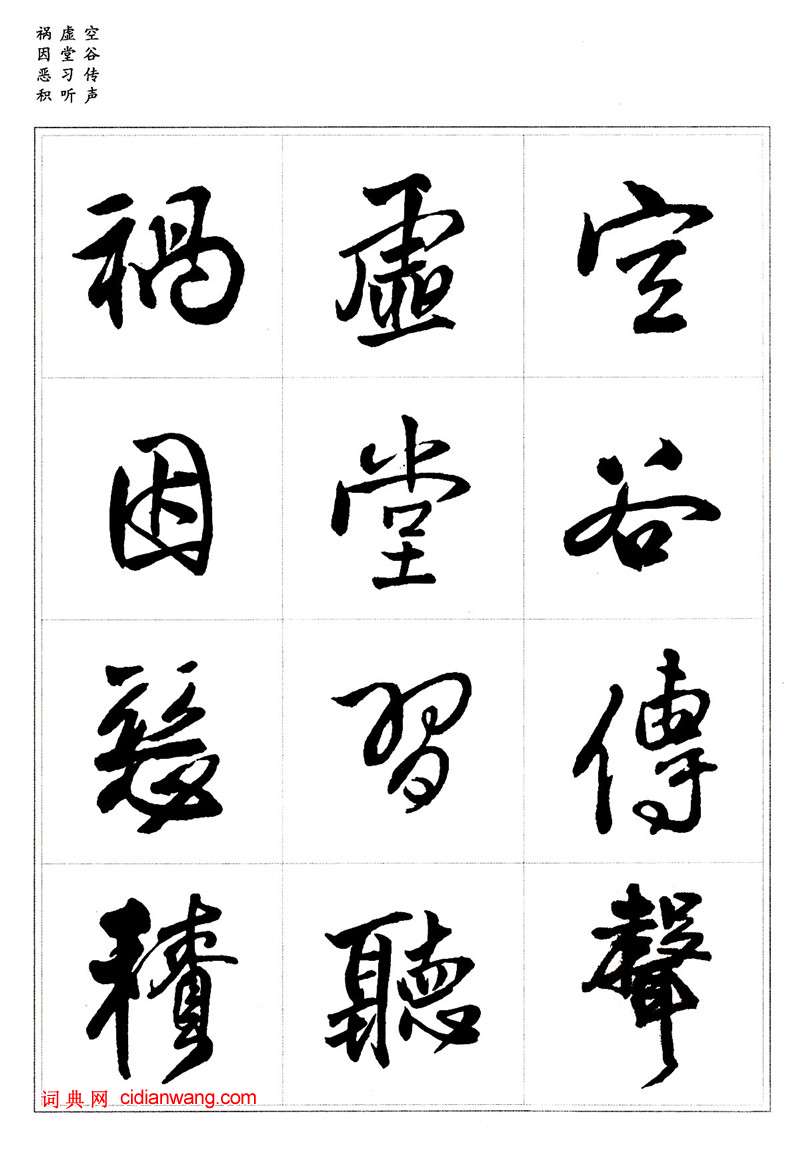 空谷传声
虚堂习听
祸因恶积
空谷傳聲
虛堂習聽
禍因惡積
词典网 cidianwang.com